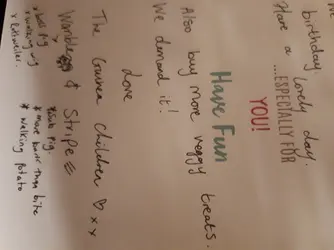 birthday. Lovely day.
Have a
...ESPECIALLY FOR
YOU!
Have Fun
Also buy more veggy treats.
We demand it!
Love
The Guinea Children ♡ x x
& Stripe
* boss pig
* walking wig
* Sub pig.
* more bark than bite
* walking potato